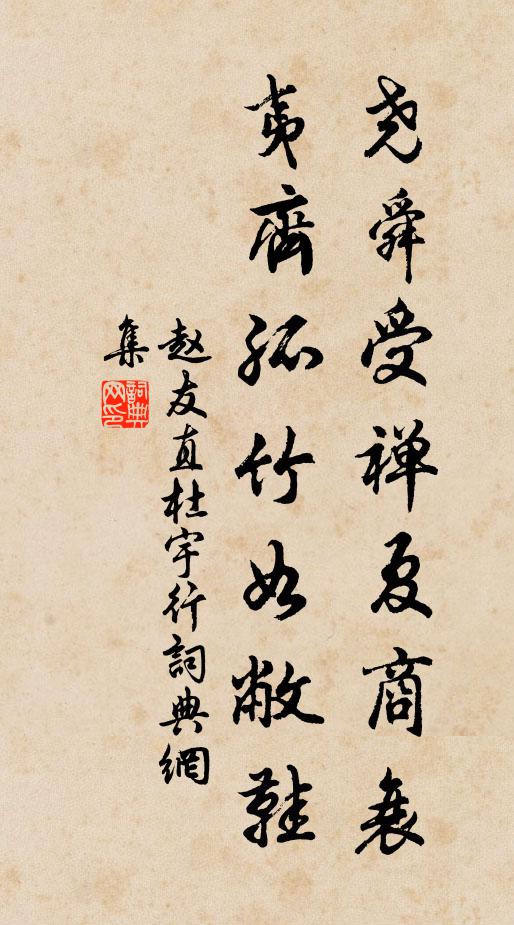 尧舜受禅夏商衰
夷齊孤竹如敝鞋
赵友直杜宇行詞典網
集
詞典網印